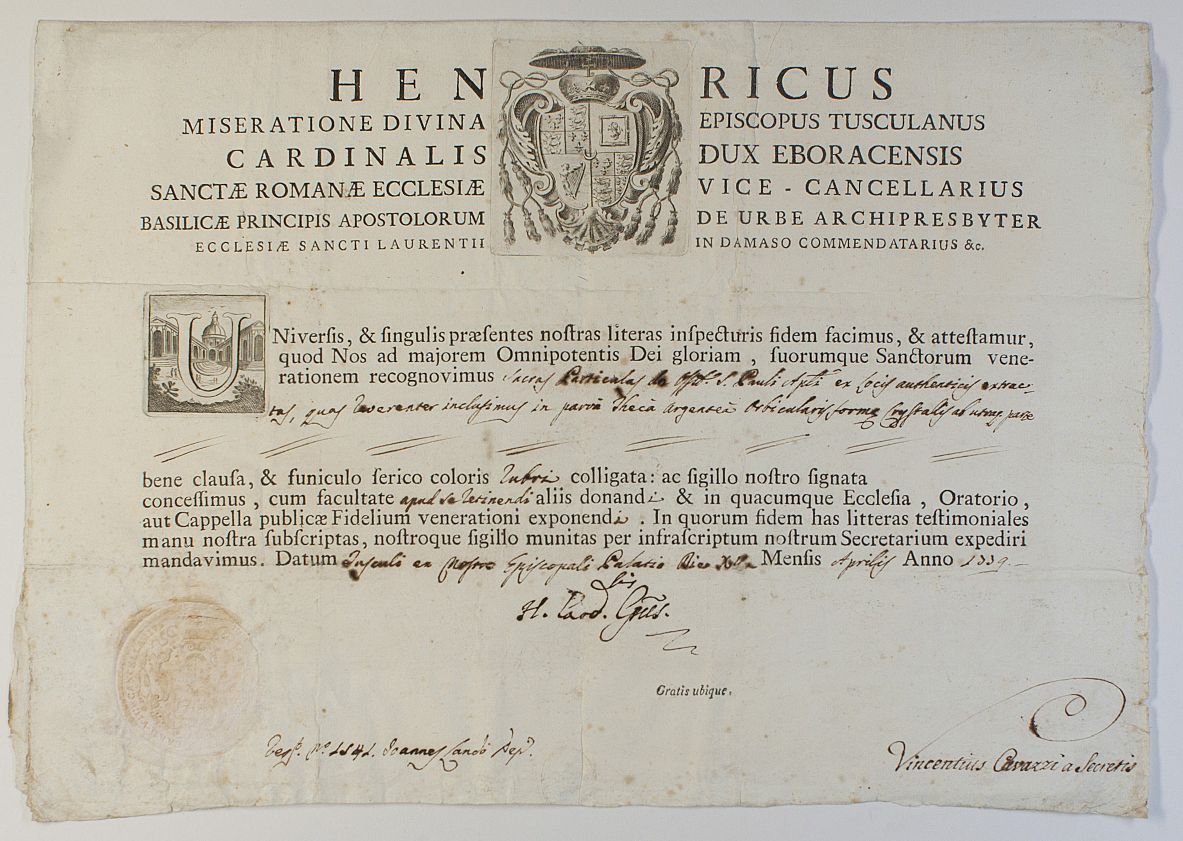 HENRICUS
MISERATIONE DIVINA EPISCOPUS TUSCULANUS
CARDINALIS DUX EBORACENSIS
SANCTÆ ROMANÆ ECCLESIÆ VICE - CANCELLARIUS
BASILICÆ PRINCIPIS APOSTOLORUM DE URBE ARCHIPRESBYTER
ECCLESIÆ SANCTI LAURENTII IN DAMASO COMMENDATARIUS &c.
UNiverſis, & ſingulis præſentes noſtras literas inſpecturis fidem facimus, & atteſtamur,
quod Nos ad majorem Omnipotentis Dei gloriam, ſuorumque Sanctorum vene-
rationem recognovimus Sacras Particulas de Ossib. S. Pauli Apli ex Locis authenticis extrac-
tas, quas reverenter inclusimus in parva Theca argentea Orbicularis formæ Crystallis ab utraq parte
bene clauſa, & funiculo ſerico coloris rubri colligata: ac ſigillo noſtro ſignata
conceſſimus, cum facultate apud se retinendi aliis donandi & in quacumque Eccleſia, Oratorio,
aut Cappella publicæ Fidelium venerationi exponendi. In quorum fidem has litteras teſtimoniales
manu noſtra ſubſcriptas, noſtroque ſigillo munitas per infraſcriptum noſtrum Secretarium expediri
mandavimus. Datum Tusculi ex Nostro Episcopali Palatio Die Mensis Aprilis Anno
H. Card.
Gratis ubique.
Joannes
Vincentius Cavazzi a Secretis